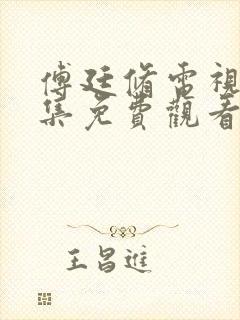 傅廷脩電視
集免費觀看
王昌進